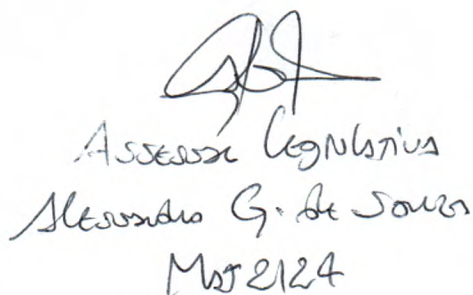 Assessor Legislativo
Alessandro G. de Souza
Mat 2124